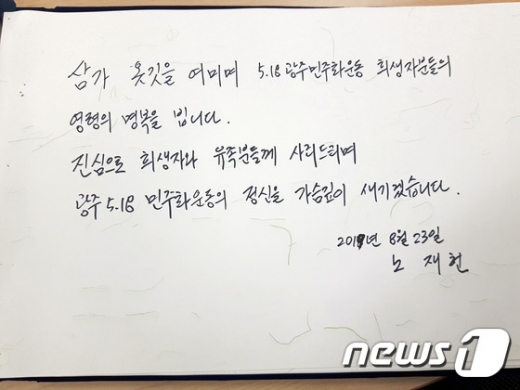 삼가 옷깃을 여미며 5.18 광주민주화운동 희생자분들의
영령의 명복을 빕니다.
진심으로 희생자와 유족분들께 사죄드리며
광주 5.18 민주화운동의 정신을 가슴깊이 새기겠습니다.
2019년 8월 23일
노 재 헌
news1